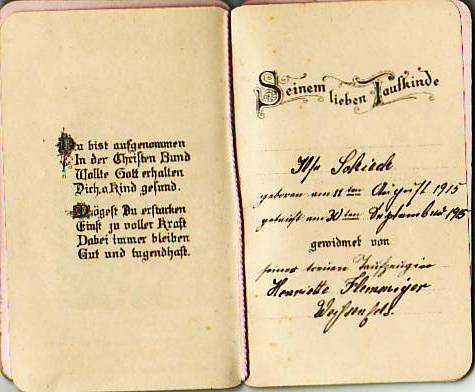 Du bist aufgenommen
In der Christen Bund
Wollte Gott erhalten
Dich, a. Kind gesund.
Mögest Du erstarken
Einst zu voller Kraft
Dabei immer bleiben
Gut und tugendhaft.
Seinem lieben Taufkinde
Ilse Schieck
geboren am 11ten August 1915
getauft am 30ten September 1915
gewidmet von
seiner treuen Taufzeugin
Henriette Flemmiger
Weissenfels.